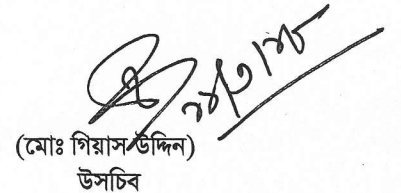 (মোঃ গিয়াস উদ্দিন)
উসচিব